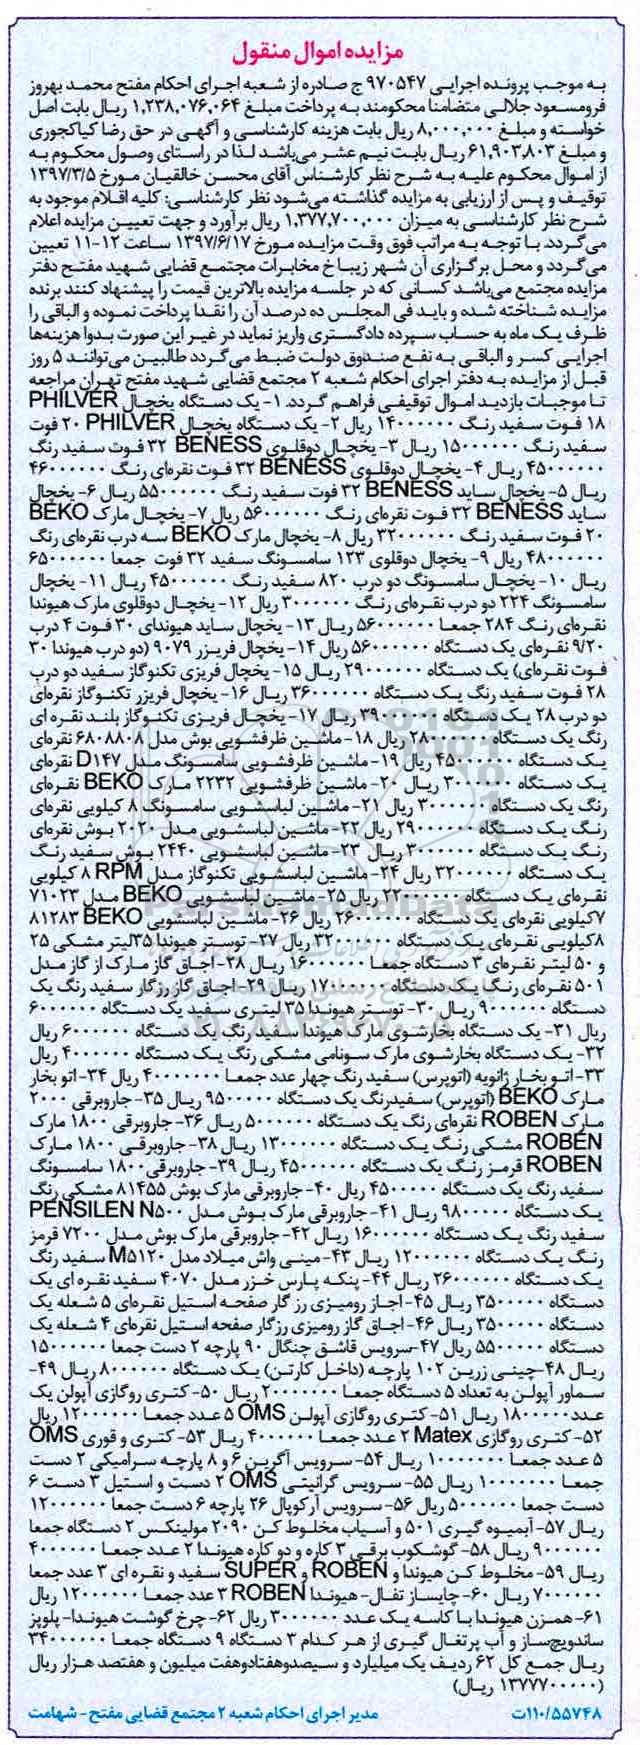 مزایده اموال منقول
به موجب پرونده اجرایی ۹۷۰۵۴۷ ج صادره از شعبه اجرای احکام مفتح محمد بهروز
فرومسعود جلالی متضامنا محکومند به پرداخت مبلغ ۱,۲۳۸,۰۷۶,۰۶۴ ریال بابت اصل
خواسته و مبلغ ۸,۰۰۰,۰۰۰ ریال بابت هزینه کارشناسی و آگهی در حق رضا کیاکجوری
و مبلغ ۶۱,۹۰۳,۸۰۳ ریال بابت نیم عشر می‌باشد لذا در راستای وصول محکوم به
از اموال محکوم علیه به شرح نظر کارشناس آقای محسن خالقیان مورخ ۱۳۹۷/۳/۵
توقیف و پس از ارزیابی به مزایده گذاشته می‌شود نظر کارشناسی: کلیه اقلام موجود به
شرح نظر کارشناسی به میزان ۱,۳۷۷,۷۰۰,۰۰۰ ریال برآورد و جهت تعیین مزایده اعلام
می‌گردد با توجه به مراتب فوق وقت مزایده مورخ ۱۳۹۷/۶/۱۷ ساعت ۱۲-۱۱ تعیین
می‌گردد و محل برگزاری آن شهر زیباخ مخابرات مجتمع قضایی شهید مفتح دفتر
مزایده مجتمع می‌باشد کسانی که در جلسه مزایده بالاترین قیمت را پیشنهاد کنند برنده
مزایده شناخته شده و باید فی المجلس ده درصد آن را نقدا پرداخت نموده و الباقی را
ظرف یک ماه به حساب سپرده دادگستری واریز نماید در غیر این صورت بدوا هزینه‌ها
اجرایی کسر و الباقی به نفع صندوق دولت ضبط می‌گردد طالبین می‌توانند ۵ روز
قبل از مزایده به دفتر اجرای احکام شعبه ۲ مجتمع قضایی شهید مفتح تهران مراجعه
تا موجبات بازدید اموال توقیفی فراهم گردد. ۱- یک دستگاه یخچال PHILVER
۱۸ فوت سفید رنگ ۱۴۰۰۰۰۰۰ ریال ۲- یک دستگاه یخچال PHILVER ۲۰ فوت
سفید رنگ ۱۵۰۰۰۰۰۰ ریال ۳- یخچال دوقلوی BENESS ۳۲ فوت سفید رنگ
۴۵۰۰۰۰۰۰ ریال ۴- یخچال دوقلوی BENESS ۳۲ فوت نقره‌ای رنگ ۴۶۰۰۰۰۰۰
ریال ۵- یخچال ساید BENESS ۳۲ فوت سفید رنگ ۵۵۰۰۰۰۰۰ ریال ۶- یخچال
ساید BENESS ۳۲ فوت نقره‌ای رنگ ۵۶۰۰۰۰۰۰ ریال ۷- یخچال مارک BEKO
۲۰ فوت سفید رنگ ۳۲۰۰۰۰۰۰ ریال ۸- یخچال مارک BEKO سه درب نقره‌ای رنگ
۴۸۰۰۰۰۰۰ ریال ۹- یخچال دوقلوی ۱۲۳ سامسونگ سفید ۳۲ فوت جمعا ۶۵۰۰۰۰۰۰
ریال ۱۰- یخچال سامسونگ دو درب ۸۲۰ سفید رنگ ۴۵۰۰۰۰۰۰ ریال ۱۱- یخچال
سامسونگ ۲۲۴ دو درب نقره‌ای رنگ ۳۰۰۰۰۰۰۰ ریال ۱۲- یخچال دوقلوی مارک هیوندا
نقره‌ای رنگ ۲۸۴ جمعا ۵۶۰۰۰۰۰۰ ریال ۱۳- یخچال ساید هیوندای ۳۰ فوت ۴ درب
۹/۲۰ نقره‌ای یک دستگاه ۵۶۰۰۰۰۰۰ ریال ۱۴- یخچال فریزر ۹۰۷۹ (دو درب هیوندا ۳۰
فوت نقره‌ای) یک دستگاه ۲۹۰۰۰۰۰۰ ریال ۱۵- یخچال فریزی تکنوگاز سفید دو درب
۲۸ فوت سفید رنگ یک دستگاه ۳۶۰۰۰۰۰۰ ریال ۱۶- یخچال فریزر تکنوگاز نقره‌ای
دو درب ۲۸ یک دستگاه ۳۹۰۰۰۰۰۰ ریال ۱۷- یخچال فریزی تکنوگاز بلند نقره ای
رنگ یک دستگاه ۲۸۰۰۰۰۰۰ ریال ۱۸- ماشین ظرفشویی بوش مدل ۶۸۰۸۸۰۸ نقره‌ای
یک دستگاه ۴۵۰۰۰۰۰۰ ریال ۱۹- ماشین ظرفشویی سامسونگ مدل D۱۴۷ نقره‌ای
یک دستگاه ۳۰۰۰۰۰۰۰ ریال ۲۰- ماشین ظرفشویی ۲۲۳۲ مارک BEKO نقره‌ای
رنگ یک دستگاه ۳۰۰۰۰۰۰۰ ریال ۲۱- ماشین لباسشویی سامسونگ ۸ کیلویی نقره‌ای
رنگ یک دستگاه ۲۹۰۰۰۰۰۰ ریال ۲۲- ماشین لباسشویی مدل ۲۰۲۰ بوش نقره‌ای
رنگ یک دستگاه ۳۰۰۰۰۰۰۰ ریال ۲۳- ماشین لباسشویی ۲۴۴۰ بوش سفید رنگ
یک دستگاه ۳۲۰۰۰۰۰۰ ریال ۲۴- ماشین لباسشویی تکنوگاز مدل RPM ۸ کیلویی
نقره‌ای یک دستگاه ۲۲۰۰۰۰۰۰ ریال ۲۵- ماشین لباسشویی BEKO مدل ۷۱۰۲۳
۷کیلویی نقره‌ای یک دستگاه ۲۶۰۰۰۰۰۰ ریال ۲۶- ماشین لباسشویی BEKO ۸۱۲۸۳
۸کیلویی نقره‌ای یک دستگاه ۳۲۰۰۰۰۰۰ ریال ۲۷- توستر هیوندا ۳۵لیتر مشکی ۲۵
و ۵۰ لیتر نقره‌ای ۳ دستگاه جمعا ۱۶۰۰۰۰۰۰ ریال ۲۸- اجاق گاز مارک از گاز مدل
۵۰۱ نقره‌ای رنگ یک دستگاه ۱۷۰۰۰۰۰۰ ریال ۲۹- اجاق گاز رزگار سفید رنگ یک
دستگاه ۹۰۰۰۰۰۰ ریال ۳۰- توستر هیوندا ۳۵ لیتری سفید یک دستگاه ۶۰۰۰۰۰۰
ریال ۳۱- یک دستگاه بخارشوی مارک هیوندا سفید رنگ یک دستگاه ۶۰۰۰۰۰۰ ریال
۳۲- یک دستگاه بخارشوی مارک سونامی مشکی رنگ یک دستگاه ۴۰۰۰۰۰۰ ریال
۳۳- اتو بخار ژانویه (اتوپرس) سفید رنگ چهار عدد جمعا ۴۰۰۰۰۰۰۰ ریال ۳۴- اتو بخار
مارک BEKO (اتوپرس) سفیدرنگ یک دستگاه ۹۵۰۰۰۰۰ ریال ۳۵- جاروبرقی ۲۰۰۰
مارک ROBEN نقره‌ای رنگ یک دستگاه ۵۰۰۰۰۰۰ ریال ۳۶- جاروبرقی ۱۸۰۰ مارک
ROBEN مشکی رنگ یک دستگاه ۱۳۰۰۰۰۰۰ ریال ۳۸- جاروبرقی ۱۸۰۰ مارک
ROBEN قرمز رنگ یک دستگاه ۴۵۰۰۰۰۰ ریال ۳۹- جاروبرقی ۱۸۰۰ سامسونگ
سفید رنگ یک دستگاه ۴۵۰۰۰۰۰ ریال ۴۰- جاروبرقی مارک بوش ۸۱۴۵۵ مشکی رنگ
یک دستگاه ۹۸۰۰۰۰۰ ریال ۴۱- جاروبرقی مارک بوش مدل PENSILEN N۵۰۰
سفید رنگ یک دستگاه ۱۶۰۰۰۰۰۰ ریال ۴۲- جاروبرقی مارک بوش مدل ۷۲۰۰ قرمز
رنگ یک دستگاه ۱۲۰۰۰۰۰۰ ریال ۴۳- مینی واش میلاد مدل M۵۱۲۰ سفید رنگ
یک دستگاه ۲۶۰۰۰۰۰ ریال ۴۴- پنکه پارس خزر مدل ۴۰۷۰ سفید نقره ای یک
دستگاه ۳۵۰۰۰۰۰ ریال ۴۵- اجاز رومیزی رز گار صفحه استیل نقره‌ای ۵ شعله یک
دستگاه ۳۵۰۰۰۰۰ ریال ۴۶- اجاق گاز رومیزی رزگار صفحه استیل نقره‌ای ۴ شعله یک
دستگاه ۵۵۰۰۰۰۰ ریال ۴۷-سرویس قاشق چنگال ۹۰ پارچه ۲ دست جمعا ۱۵۰۰۰۰۰۰
ریال ۴۸-چینی زرین ۱۰۲ پارچه (داخل کارتن) یک دستگاه ۸۰۰۰۰۰۰ ریال ۴۹-
سماور آپولن به تعداد ۵ دستگاه جمعا ۲۰۰۰۰۰۰۰ ریال ۵۰- کتری روگازی آپولن یک
عدد ۱۸۰۰۰۰۰ ریال ۵۱- کتری روگازی آپولن OMS ۵ عدد جمعا ۱۲۰۰۰۰۰۰ ریال
۵۲- کتری روگازی Matex ۲ عدد جمعا ۴۰۰۰۰۰۰ ریال ۵۳- کتری و قوری OMS
۵ عدد جمعا ۱۰۰۰۰۰۰۰ ریال ۵۴- سرویس آگرین ۶ و ۸ پارچه سرامیکی ۲ دست
جمعا ۱۰۰۰۰۰۰۰ ریال ۵۵- سرویس گرانیتی OMS ۲ دست و استیل ۳ دست ۶
دست جمعا ۵۰۰۰۰۰۰ ریال ۵۶- سرویس آرکوپال ۲۶ پارچه ۶ دست جمعا ۱۲۰۰۰۰۰۰
ریال ۵۷- آبمیوه گیری ۵۰۱ و آسیاب مخلوط کن ۲۰۹۰ مولینکس ۲ دستگاه جمعا
۹۰۰۰۰۰۰ ریال ۵۸- گوشکوب برقی ۳ کاره و دو کاره هیوندا ۲ عدد جمعا ۴۰۰۰۰۰۰
ریال ۵۹- مخلوط کن هیوندا و ROBEN و SUPER سفید و نقره ای ۳ عدد جمعا
۷۰۰۰۰۰۰ ریال ۶۰- چایساز تفال- هیوندا ROBEN ۳ عدد جمعا ۱۲۰۰۰۰۰۰ ریال
۶۱- همزن هیوندا با کاسه یک عدد ۳۰۰۰۰۰۰ ریال ۶۲- چرخ گوشت هیوندا- پلوپز
ساندویچ‌ساز و آب پرتغال گیری از هر کدام ۳ دستگاه ۹ دستگاه جمعا ۳۴۰۰۰۰۰۰
ریال جمع کل ۶۲ ردیف یک میلیارد و سیصدوهفتادوهفت میلیون و هفتصد هزار ریال
(۱۳۷۷۷۰۰۰۰۰ ریال)
۱۱۰/۵۵۷۴۸ت مدیر اجرای احکام شعبه ۲ مجتمع قضایی مفتح - شهامت